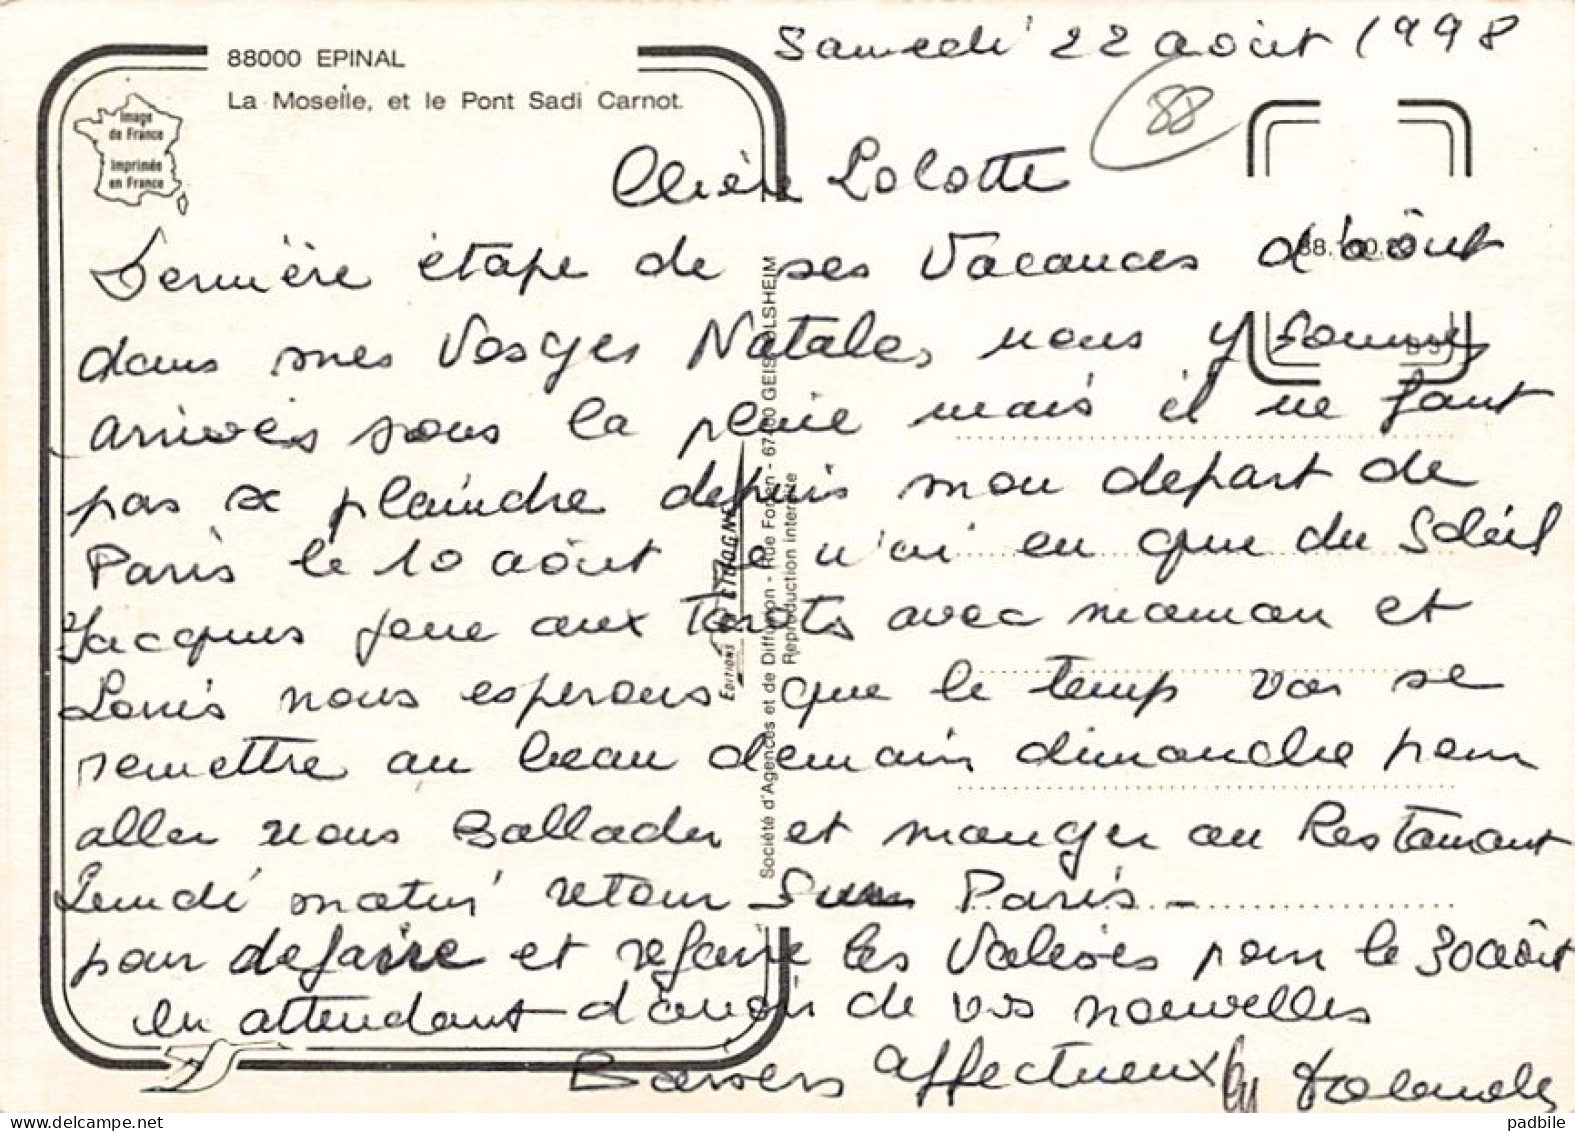 Samedi 22 août 1998
88000 EPINAL
La Moselle, et le Pont Sadi Carnot.
Image
de France
Imprimée
en France
88
Chère Lolotte
Dernière étape de ses Vacances d'aôut
dans mes Vosges Natales, nous y sommes
arrivés sous la pluie mais il ne faut
pas se plaindre depuis mon depart de
Paris le 10 aôut je n'ai eu que du Soleil
Jacques joue aux Tarots avec maman et
Louis nous esperons que le temps va se
remettre au beau demain dimanche pour
aller nous Ballader et manger au Restaurant
Jeudi matin retour sur Paris -
pour defaire et refaire les Valises pour le 30 aôut
en attendant d'avoir de vos nouvelles
Baisers affectueux
Yolande
EDITIONS D'ART
Société d'Agences et de Diffusion - Rue Fodéen - 67 GEISPOLSHEIM
Reproduction interdite
padbile